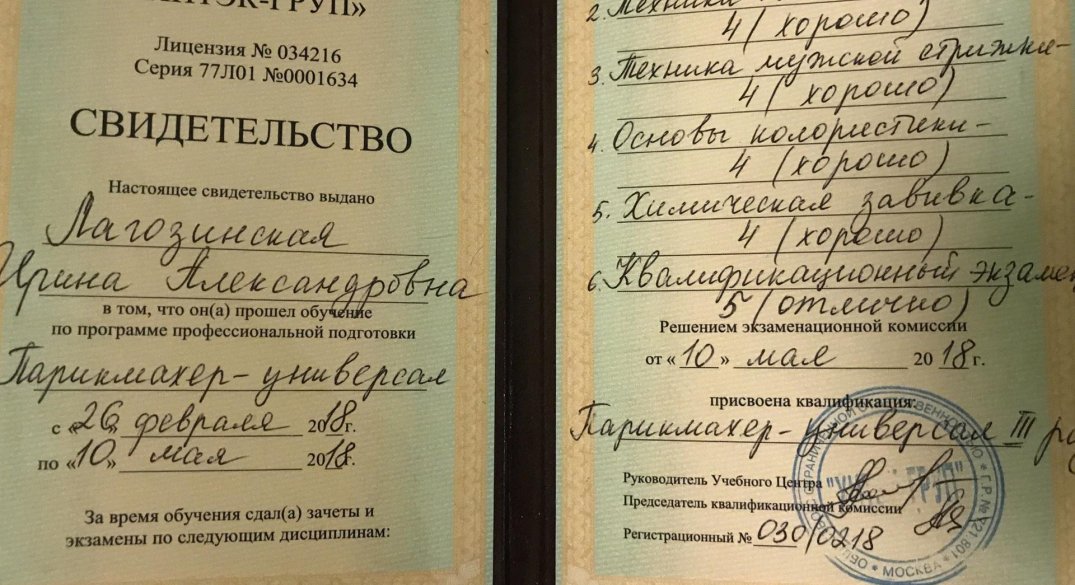 ГРУП»
Лицензия № 034216
Серия 77Л01 №0001634
СВИДЕТЕЛЬСТВО
Настоящее свидетельство выдано
Лагозинская
Ирина Александровна
в том, что он(а) прошел обучение
по программе профессиональной подготовки
Парикмахер-универсал
с «26» февраля 2018г.
по «10» мая 2018г.
За время обучения сдал(а) зачеты и
экзамены по следующим дисциплинам:
2. Техника
4 (хорошо)
3. Техника мужской стрижки-
4 (хорошо)
4. Основы колористики-
4 (хорошо)
5. Химическая завивка-
4 (хорошо)
6. Квалификационный экзамен
5 (отлично)
Решением экзаменационной комиссии
от «10» мая 2018г.
присвоена квалификация:
Парикмахер-универсал III
Руководитель Учебного Центра
Председатель квалификационной комиссии
Регистрационный № 030/0218
МОСКВА